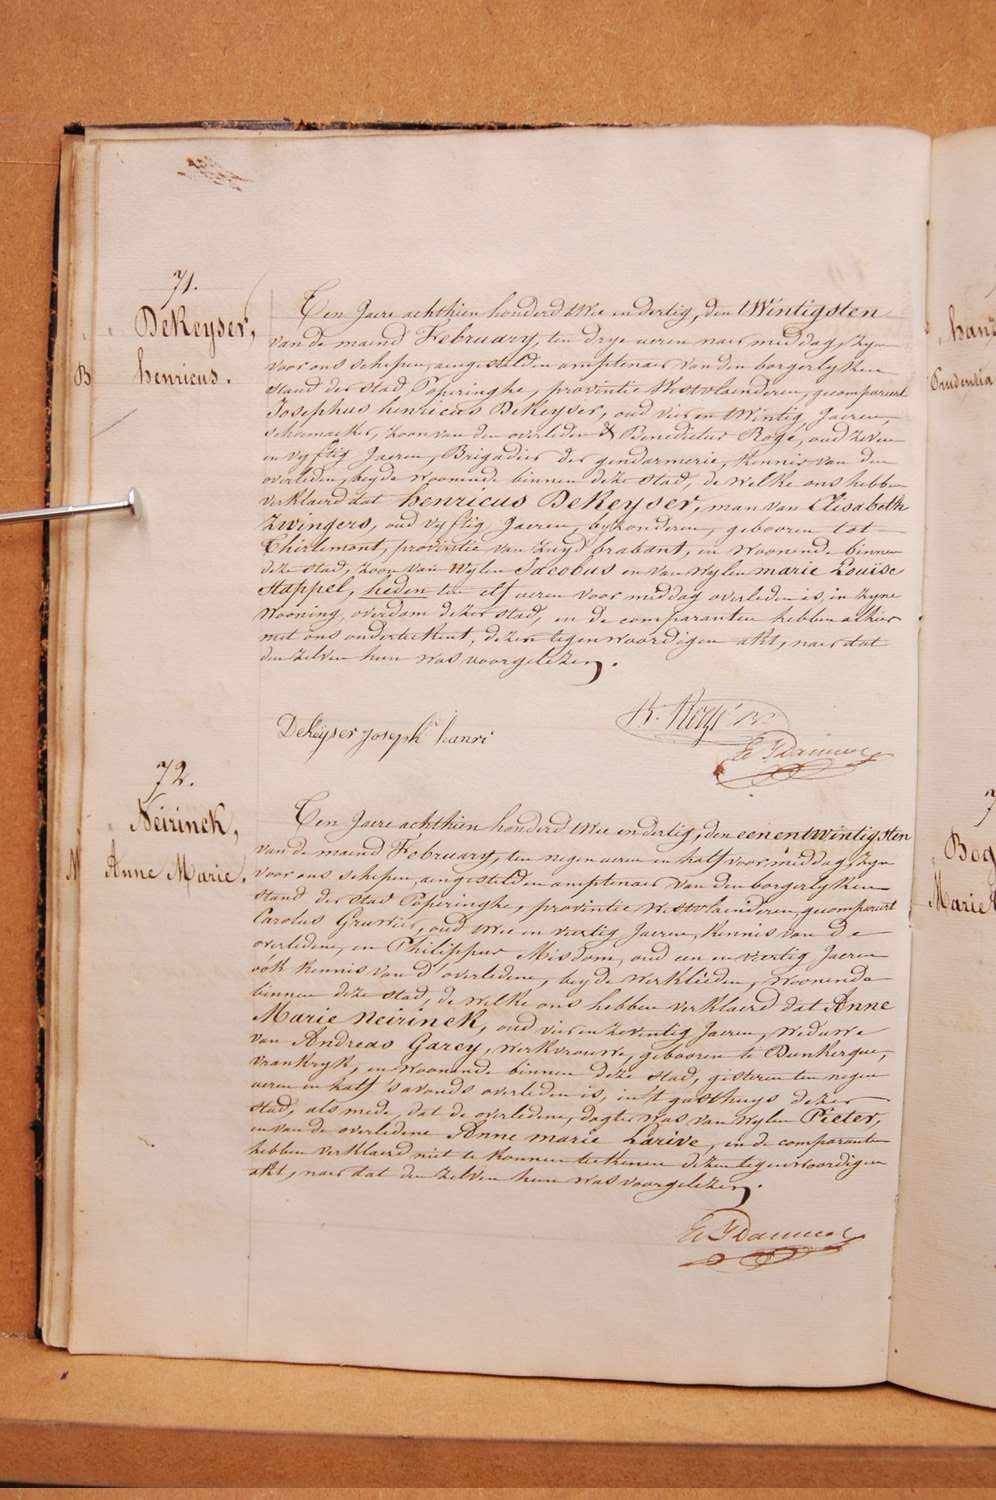 71.
DeKeyser,
henricus.
B
Ten Jaere achthien honderd twee en dertig, den twintigsten
van de maend February, ten drye ueren naer middag, zyn
voor ons schepen, aengestelden amptenaer van den borgerlyken
stand der stad Poperinghe, provintie Westvlaenderen, gecompareert
Josephus henricus DeKeyser, oud vier en twintig Jaeren,
schoemaeker, zoon van den overleden & Benedictus Rogé, oud zeven
en vyftig Jaeren, Brigadier der gendarmerie, Kennis van den
overleden, beyde woonende binnen deze stad, de welke ons hebben
verklaerd dat henricus DeKeyser, man van Elisabeth
Zwingers, oud vyftig Jaeren, byzonderen, gebooren tot
Thirlemont, provintie van Zuyd brabant, en woonende binnen
deze stad, zoon van wylen Jacobus en van wylen marie Louïse
Stappel, heden ten elf ueren voor middag overleden is, in zyne
wooning, overdam dezer stad, en de comparanten hebben alhier
met ons onderteekent, dezen tegenwoordigen akt, naer dat
den zelven hun was voorgelezen.
DeKeyser joseph hanri
B. Rogé
72.
Neirinck,
Anne Marie.
N
Ten Jaere achthien honderd twee en dertig, den een en twintigsten
van de maend February, ten negen ueren en half voor middag, zyn
voor ons schepen, aengestelden amptenaer van den borgerlyken
stand der stad Poperinghe, provintie Westvlaenderen, gecompareert
Carolus Gruwier, oud twee en veertig Jaeren, Kennis van de
overledene, en Philippus Misdom, oud een en veertig Jaeren
oók Kennis van d'overledene, beyde werklieden, woonende
binnen deze stad, de welke ons hebben verklaerd dat Anne
Marie Neirinck, oud vier en zeventig Jaeren, weduwe
van Andreas Garcy, werkvrouwe, gebooren te Dunkerque,
vrankryk, en woonende binnen deze stad, gisteren ten negen
ueren en half 's avonds overleden is, in't gasthuys dezer
stad, als mede, dat de overledene, dogter was van wylen Pieter,
en van de overledene Anne marie Larive, en de comparanten
hebben verklaerd niet te konnen teekenen dezen tegenwoordigen
akt, naer dat den zelven hun was voorgelezen.
7
Beg
Marie
Prudentia